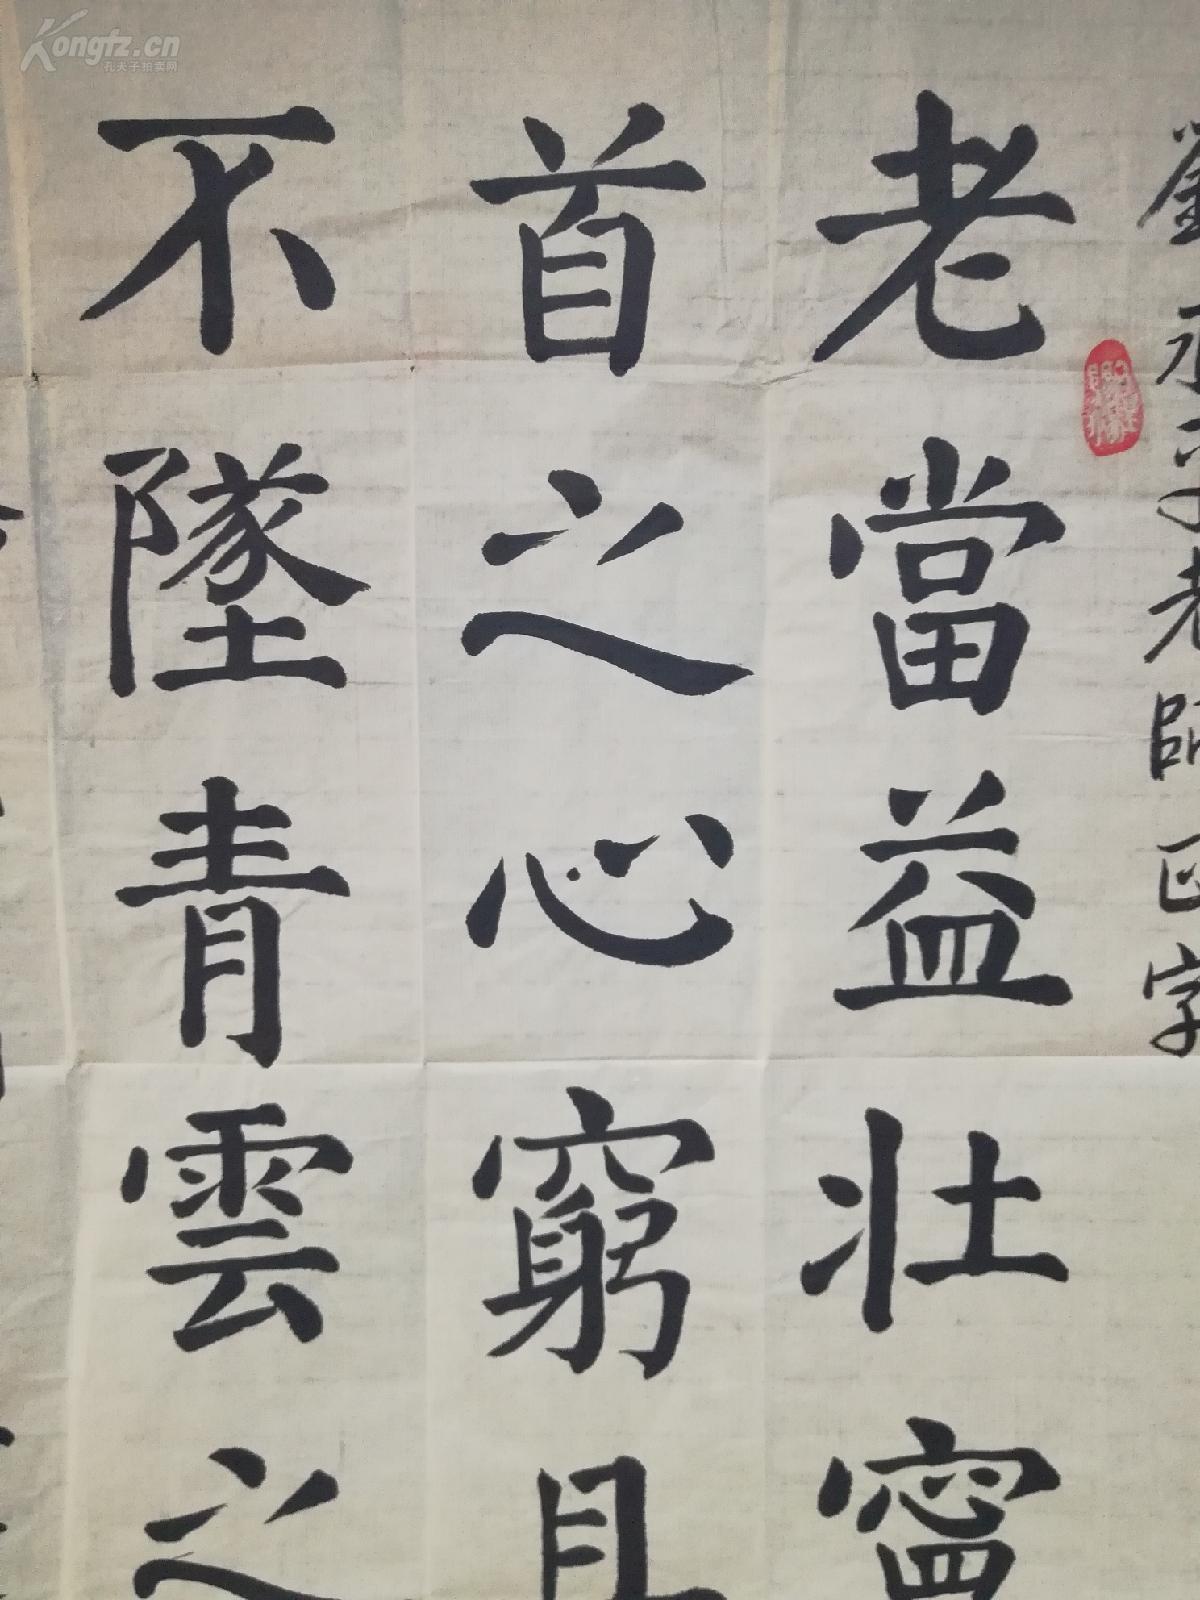 劉承子老師正字
老當益壯寧
首之心窮且
不墜青雲之
Kongfz.cn
孔夫子拍卖网